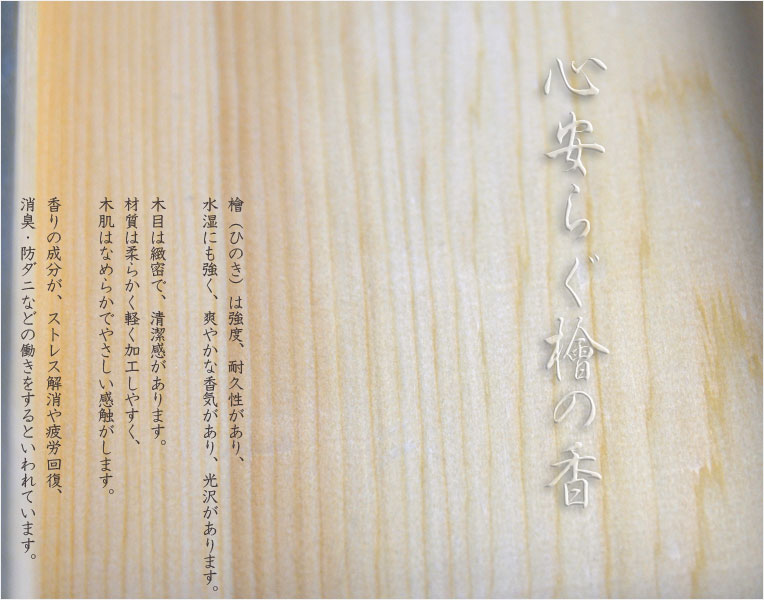 心安らぐ檜の香
檜（ひのき）は強度、耐久性があり、
水湿にも強く、爽やかな香気があり、光沢があります。
木目は緻密で、清潔感があります。
材質は柔らかく軽く加工しやすく、
木肌はなめらかでやさしい感触がします。
香りの成分が、ストレス解消や疲労回復、
消臭・防ダニなどの働きをするといわれています。